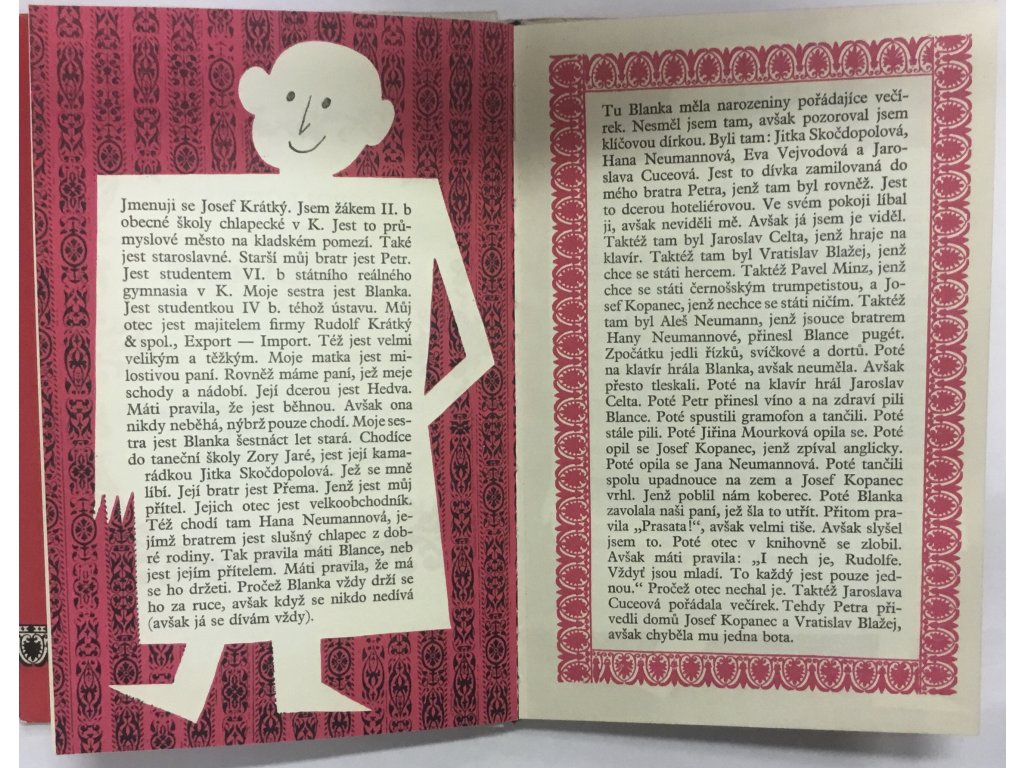 Jmenuji se Josef Krátký. Jsem žákem II. b
obecné školy chlapecké v K. Jest to prů-
myslové město na kladském pomezí. Také
jest staroslavné. Starší můj bratr jest Petr.
Jest studentem VI. b státního reálného
gymnasia v K. Moje sestra jest Blanka.
Jest studentkou IV b. téhož ústavu. Můj
otec jest majitelem firmy Rudolf Krátký
& spol., Export — Import. Též jest velmi
velikým a těžkým. Moje matka jest mi-
lostivou paní. Rovněž máme paní, jež meje
schody a nádobí. Její dcerou jest Hedva.
Máti pravila, že jest běhnou. Avšak ona
nikdy neběhá, nýbrž pouze chodí. Moje ses-
tra jest Blanka šestnáct let stará. Chodíce
do taneční školy Zory Jaré, jest její kama-
rádkou Jitka Skočdopolová. Jež se mně
líbí. Její bratr jest Přema. Jenž jest můj
přítel. Jejich otec jest velkoobchodník.
Též chodí tam Hana Neumannová, je-
jímž bratrem jest slušný chlapec z dob-
ré rodiny. Tak pravila máti Blance, neb
jest jejím přítelem. Máti pravila, že má
se ho držeti. Pročež Blanka vždy drží se
ho za ruce, avšak když se nikdo nedívá
(avšak já se dívám vždy).
Tu Blanka měla narozeniny pořádajíce večí-
rek. Nesměl jsem tam, avšak pozoroval jsem
klíčovou dírkou. Byli tam: Jitka Skočdopolová,
Hana Neumannová, Eva Vejvodová a Jaro-
slava Cuceová. Jest to dívka zamilovaná do
mého bratra Petra, jenž tam byl rovněž. Jest
to dcerou hoteliérovou. Ve svém pokoji líbal
ji, avšak neviděli mě. Avšak já jsem je viděl.
Taktéž tam byl Jaroslav Celta, jenž hraje na
klavír. Taktéž tam byl Vratislav Blažej, jenž
chce se státi hercem. Taktéž Pavel Minz, jenž
chce se státi černošským trumpetistou, a Jo-
sef Kopanec, jenž nechce se státi ničím. Taktéž
tam byl Aleš Neumann, jenž jsouce bratrem
Hany Neumannové, přinesl Blance pugét.
Zpočátku jedli řízků, svíčkové a dortů. Poté
na klavír hrála Blanka, avšak neuměla. Avšak
přesto tleskali. Poté na klavír hrál Jaroslav
Celta. Poté Petr přinesl víno a na zdraví pili
Blance. Poté spustili gramofon a tančili. Poté
stále pili. Poté Jiřina Mourková opila se. Poté
opil se Josef Kopanec, jenž zpíval anglicky.
Poté opila se Jana Neumannová. Poté tančili
spolu upadnouce na zem a Josef Kopanec
vrhl. Jenž poblil nám koberec. Poté Blanka
zavolala naši paní, jež šla to utřít. Přitom pra-
vila „Prasata!“, avšak velmi tiše. Avšak slyšel
jsem to. Poté otec v knihovně se zlobil.
Avšak máti pravila: „I nech je, Rudolfe.
Vždyť jsou mladí. To každý jest pouze jed-
nou.“ Pročež otec nechal je. Taktéž Jaroslava
Cuceová pořádala večírek. Tehdy Petra při-
vedli domů Josef Kopanec a Vratislav Blažej,
avšak chyběla mu jedna bota.